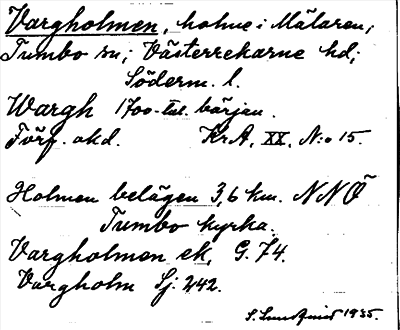 Vargholmen, holme i Mälaren,
Tumbo sn; Västerrekarne hd;
Söderm. l.
Wargh 1700-tal. början.
Förf. okd. KrA, XX, N:o 15.
Holmen belägen 3,6 km. NNÖ
Tumbo kyrka.
Vargholmen ek, G. 74.
Vargholm Sj: 242.
S. 1935.